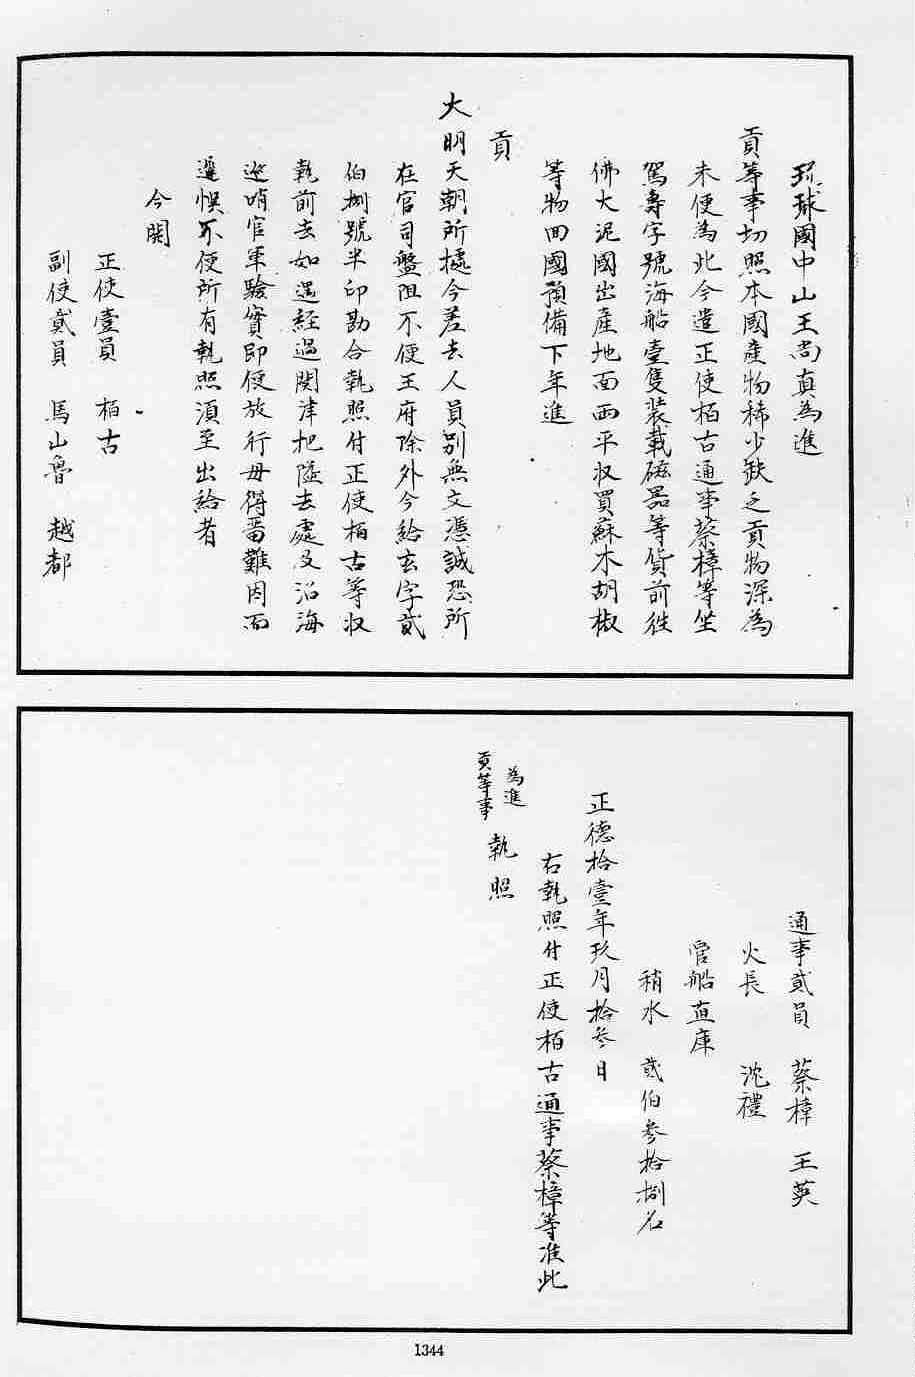 琉球國中山王尚真為進
貢等事切照本國產物稀少缺乏貢物深為
未便為此今遣正使栢古通事蔡樟等坐
駕壽字號海船壹隻装載磁器等貨前徃
佛大泥國出產地面兩平収買蘇木胡椒
等物回國預備下年進
貢
大明天朝所據今差去人員別無文憑誠恐所
在官司盤阻不便王府除外今給玄字貳
伯捌號半印勘合執照付正使栢古等収
執前去如遇經過関津把隘去處及沿海
巡哨官軍驗實即便放行毋得留難因而
遲悞不便所有執照湏至出給者
今関
正使壹員 栢古
副使貳員 馬山魯 越都
通事貳員 蔡樟 王英
火長 沈禮
管船直庫
稍水 貳伯參拾捌名
正德拾壹年玖月拾叁日
右執照付正使栢古通事蔡樟等准此
為進
貢等事
執照
1344